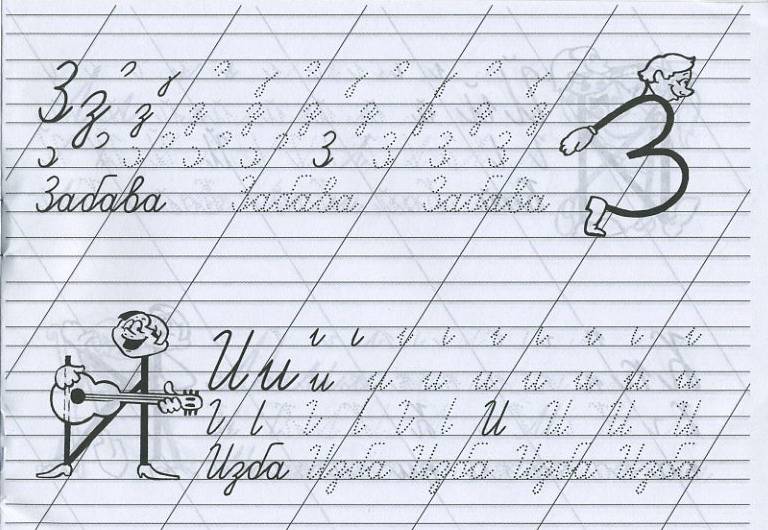 З з з з з з з з з з
З З З З
Забава Забава Забава
И и и и и и и и и и
И И И И
Изба Изба Изба Изба Изба